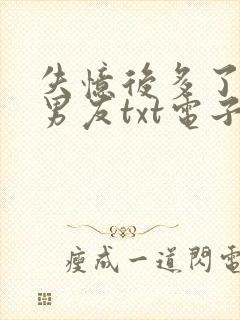 失憶後多了
男友txt電子
瘦成一道閃電